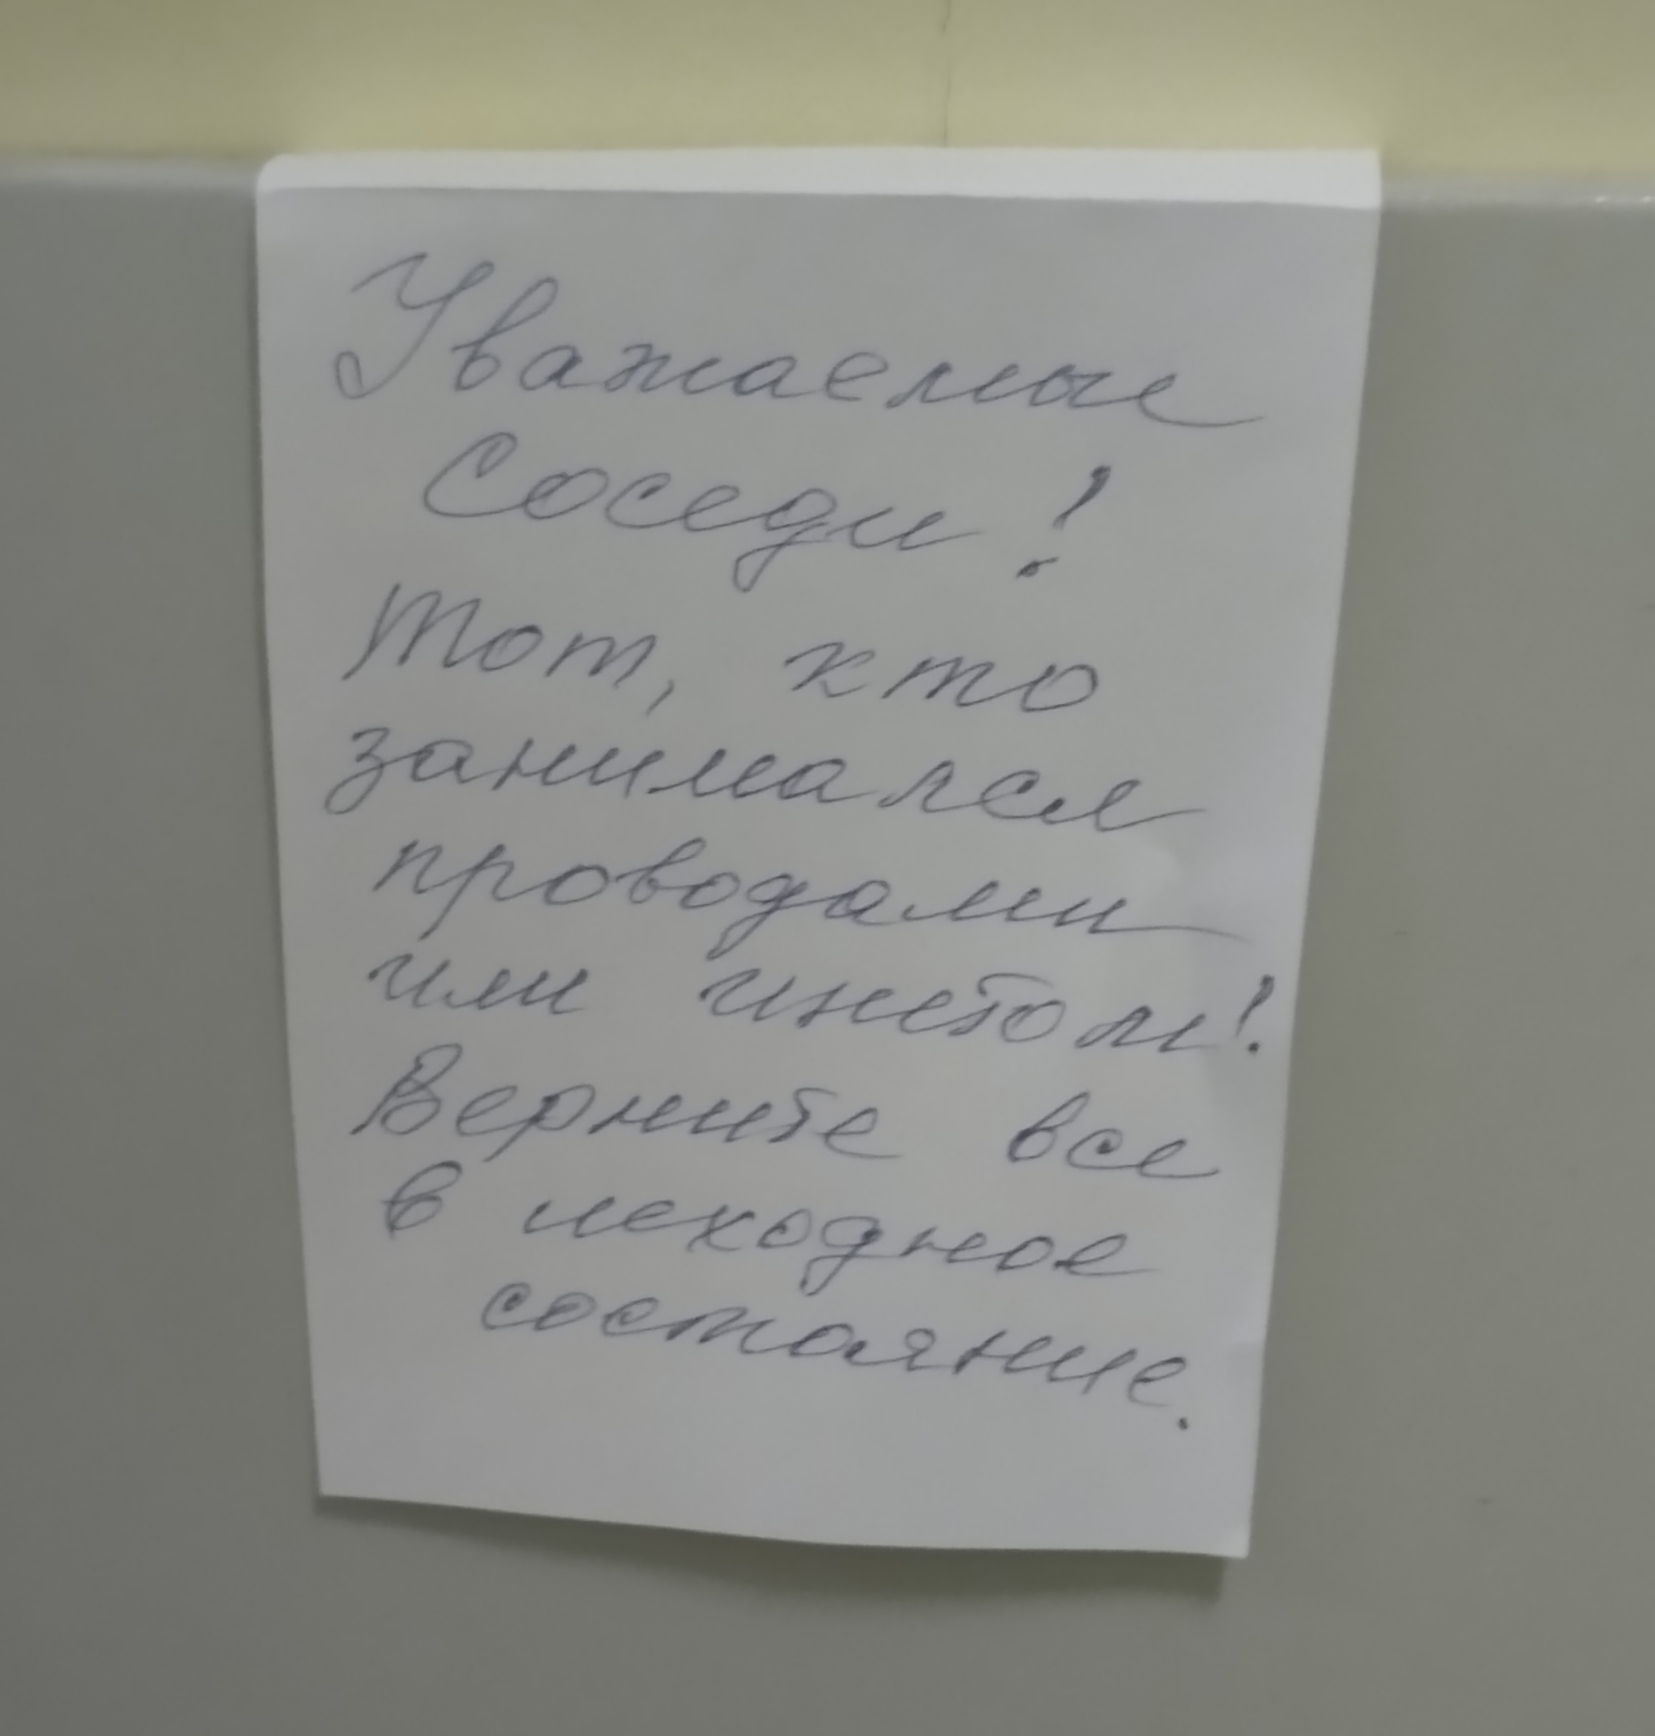 Уважаемые
Соседи!
Тот, кто
занимался
проводами
или инетом!
Верните все
в исходное
состояние.